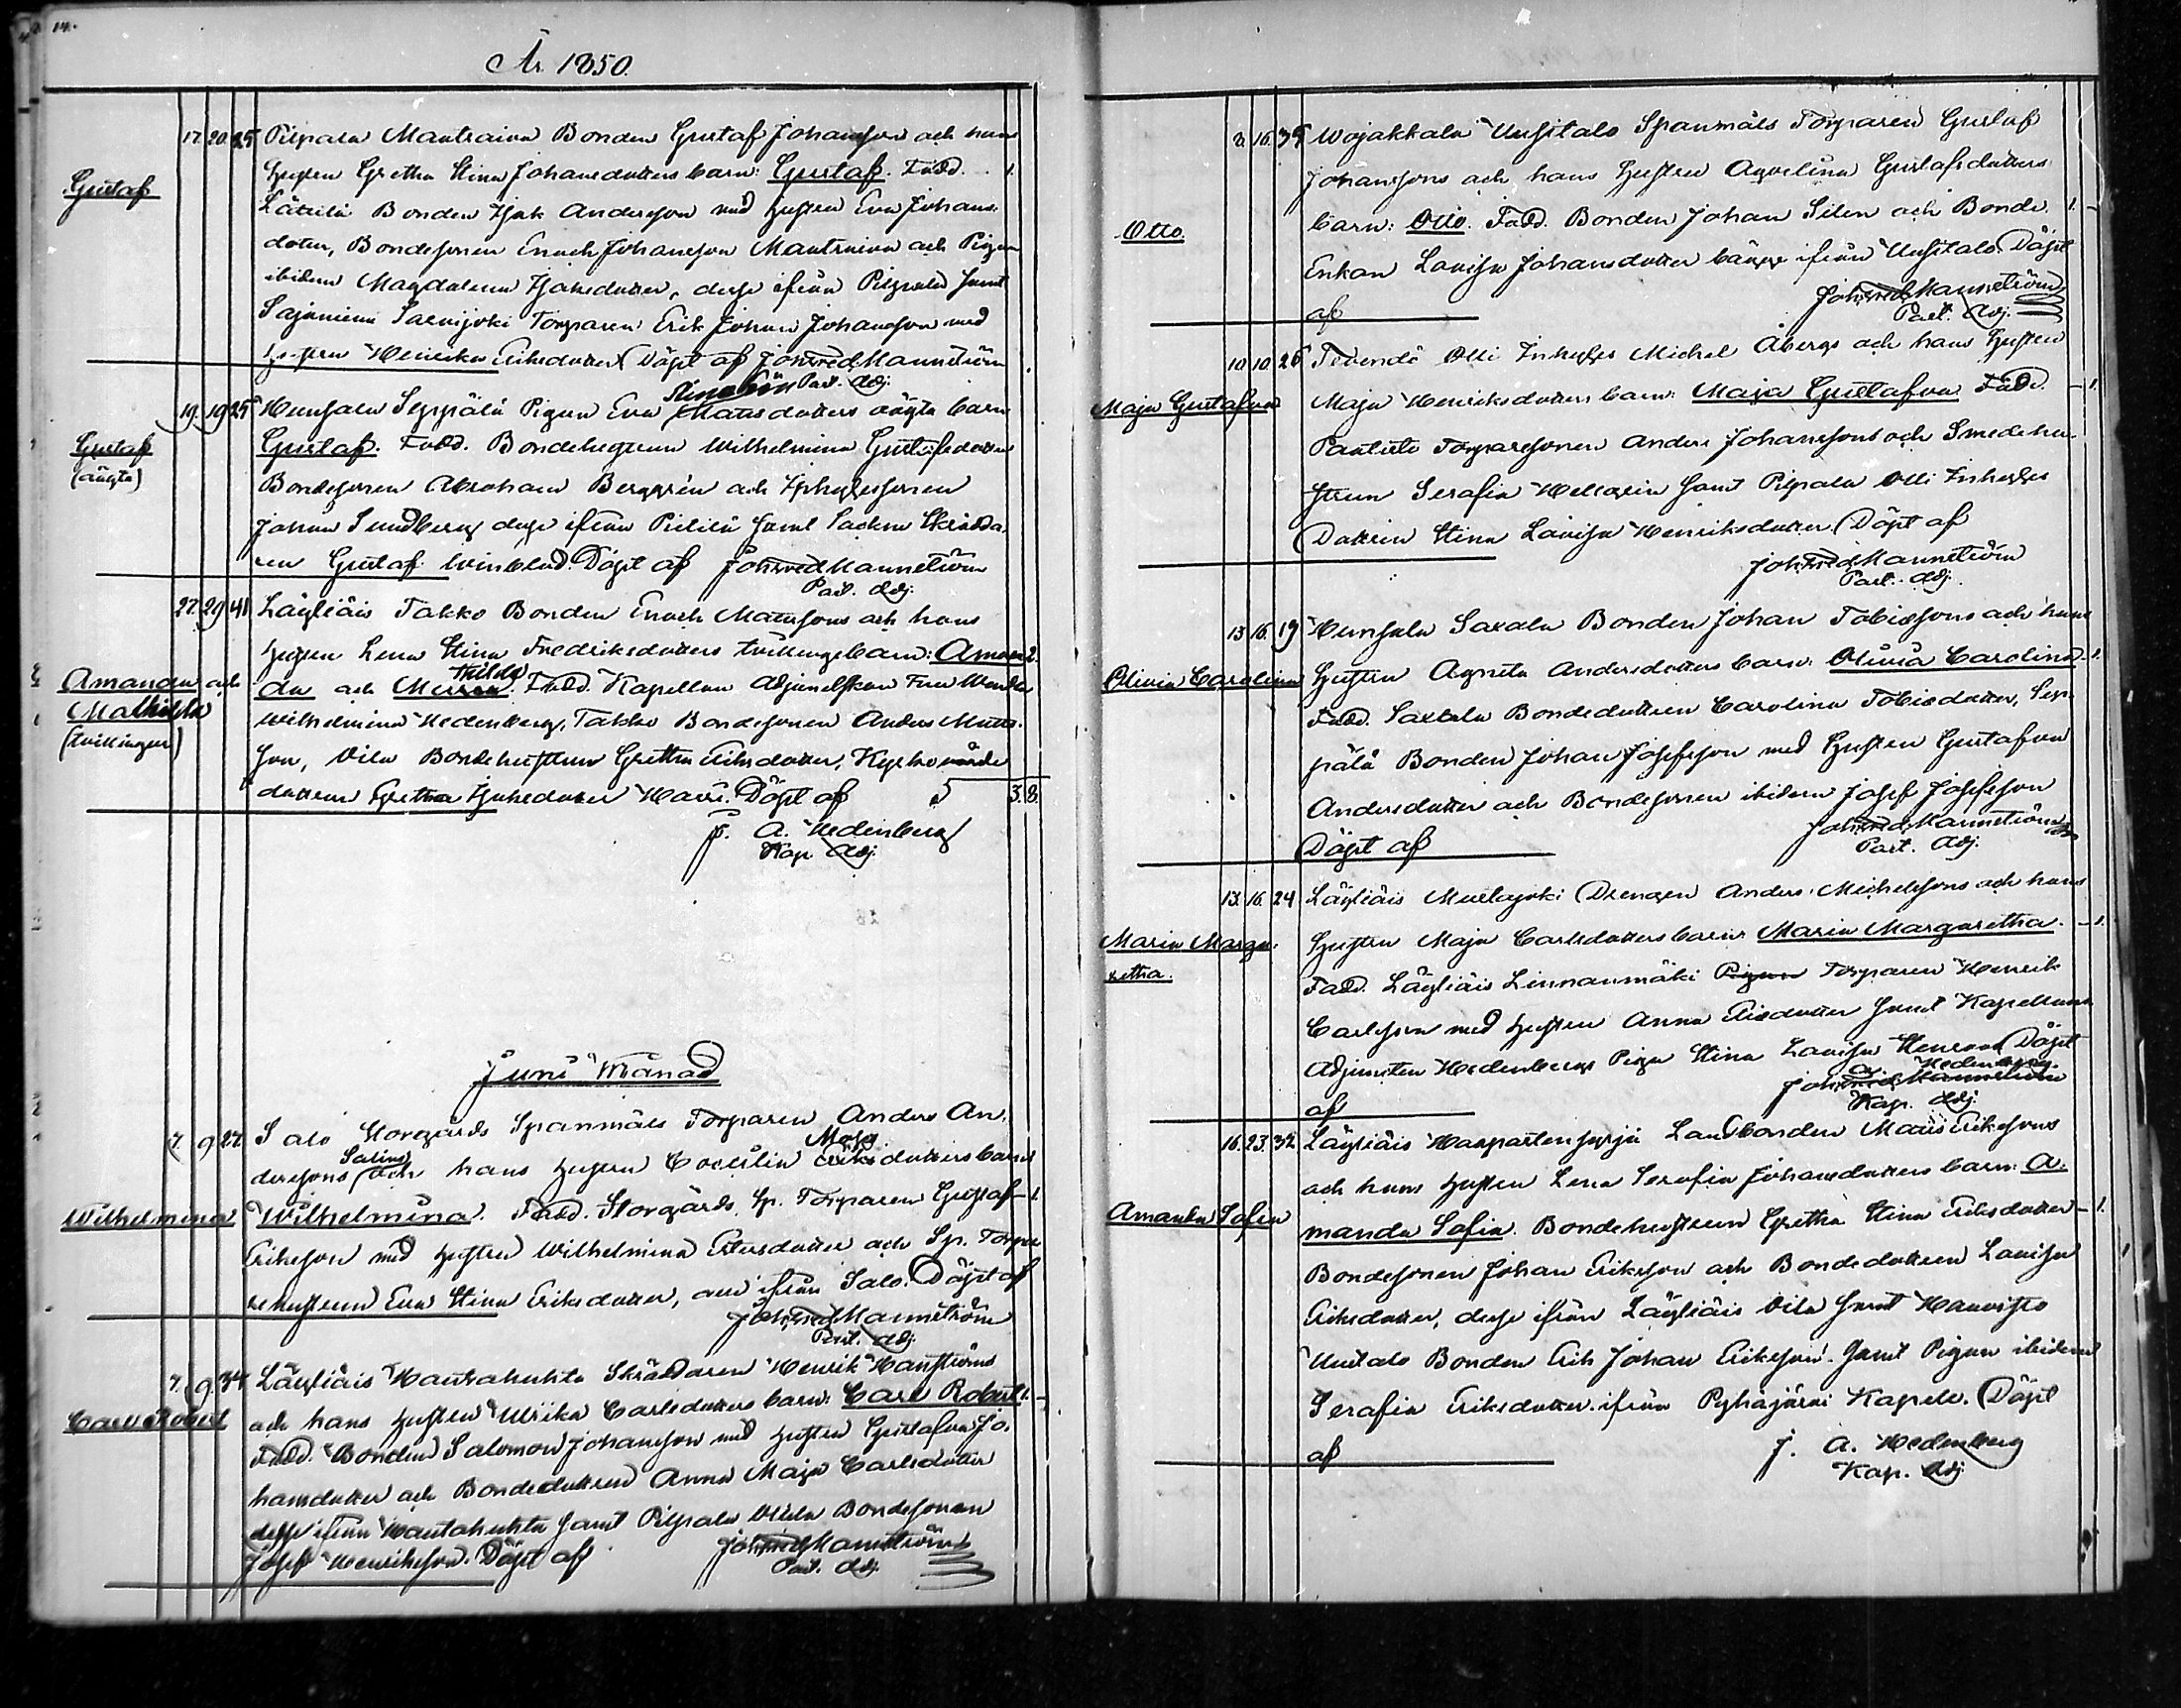 14.
År 1850.
17. 20. 25 Pilpala Mantraiva Bonden Gustaf Johansson och hans
Gustaf
Hustru Gretha Stina Johansdotters barn: Gustaf. Fadd. 1.
Bonden Isak Andersson med Hustru Eva Johans-
dotter, Bondesonen Enoch Johansson Mantraiva och Pigan
ibidem Magdalena Isaksdotter, desse ifrån Pilpala samt
Sajaniemi Torparen Erik Johan Johansson med
Hustru Henrika Eriksdotter. Döpt af Joh: Fred: Mannström
Past. Adj.
19. 19 25 Hunsala Seppälä Pigan Eva Stina Matsdotters oägta barn
Gustaf
(oägta)
Gustaf. Fadd. Bondehustrun Wilhelmina Gustafsdotter
Bondesonen Abraham Berggrén och Inhysessonen
Johan Sundberg desse ifrån samt Skrädda-
ren Gustaf Winblad. Döpt af Joh: Fred: Mannström
Past. Adj.
27. 29 41 Läyliäis Takko Bonden Enoch Mattssons och hans
Hustru Lena Stina Fredriksdotters tvillingebarn: Aman- 2.
Amanda och
Mathilda
(tvillingar)
da och Fadd. Kapellans Adjunctskan Fru Wendla
Wilhelmina Hedenberg, Takko Bondesonen Anders Matts-
son, Vila Bondehustrun Gretha Eriksdotter, Kyrkovärds
dottren Gretha Isaksdotter Döpt af 5 3. 8.
J. A. Hedenberg
Kap. Adj.
Juni Månad
7. 9 27. Salo Storgårds Spanmåls Torparen Anders An-
derssons och hans Hustru Maja dotters barn
Wilhelmina
Wilhelmina. Fadd. Storgårds Sp. Torparen Gustaf 1.
Eriksson med Hustru Wilhelmina och Sp. Torpa-
rehustrun Eva Stina Eriksdotter, alla ifrån Salo. Döpt af
Joh: Fred: Mannström
Past. Adj.
7. 9 34 Läyliäis Hautahuhta Skräddaren Henrik Hanströms
Carl Robert
och hans Hustru Ulrika Carlsdotters barn: Carl Robert 1.
Fadd. Bonden Salomon Johansson med Hustru Gustafva Jo-
hansdotter och Bondedottren Anna Maja Carlsdotter
desse ifrån Hautahuhta samt Pilpala Bondesonen
Josef Henriksson. Döpt af Joh: Fred: Mannström
Past. Adj.
8. 16. 35 Wojakkala Uusitalo Spanmåls Torparen Gustaf
Johanssons och hans Hustru Aqvelina Gustafsdotters
Otto.
barn: Otto. Fadd. Bonden Johan Silen och Bonde- 1.
Enkan Lovisa Johansdotter bägge ifrån Uusitalo. Döpt
af Joh: Fred: Mannström
Past. Adj.
10. 10. 26 Tevendö Olli Inhyses Michel Åbergs och hans Hustru
Maja Gustafva
Maja Henriksdotters barn: Maja Gustafva Fadd. 1.
Torparesonen Anders Johanssons och Smedehu-
strun Serafia Hellgrén samt Pilpala Olli Inhyses
Dottren Stina Lovisa Henriksdotter. Döpt af
Joh: Fred: Mannström
Past. Adj.
13 16. 19 Hunsala Saxala Bonden Johan Tobiassons och hans
Olivia Carolina
Hustru Agneta Andersdotters barn: Olivia Carolina 1.
Fadd. Saxala Bondedottren Carolina Tobiasdotter, Sep-
pälä Bonden Johan Josefsson med Hustru Gustafva
Andersdotter och Bondesonen ibidem Josef Josefsson
Döpt af Joh: Fred: Mannström
Past. Adj.
13. 16. 24 Läyliäis Myllyjoki Drengen Anders Michelssons och hans
Maria Marga-
retha.
Hustru Maja Carlsdotters barn: Maria Margaretha. 1.
Fadd. Läyliäis Linnanmäki Pigan Torparen Henrik
Carlsson med Hustru Anna samt Kapellans
Adjuncten Hedenbergs Piga Stina Lovisa Döpt
af J. A. Hedenberg
Joh: Fred: Mannström
Kap. Adj.
16. 23. 32 Läyliäis Landbonden Matts Erikssons
och hans Hustru Lena Serafia Johansdotters barn: A-
Amanda Sofia
manda Sofia. Bondehustrun Gretha Stina Eriksdotter 1.
Bondesonen Johan Eriksson och Bondedottren Lovisa
Eriksdotter, desse ifrån Läyliäis Vila samt
Uusitalo Bonden Erik Johan Eriksson samt Pigan ibidem
Serafia Eriksdotter ifrån Pyhäjärvi Kapell. Döpt
af J. A. Hedenberg
Kap. Adj.